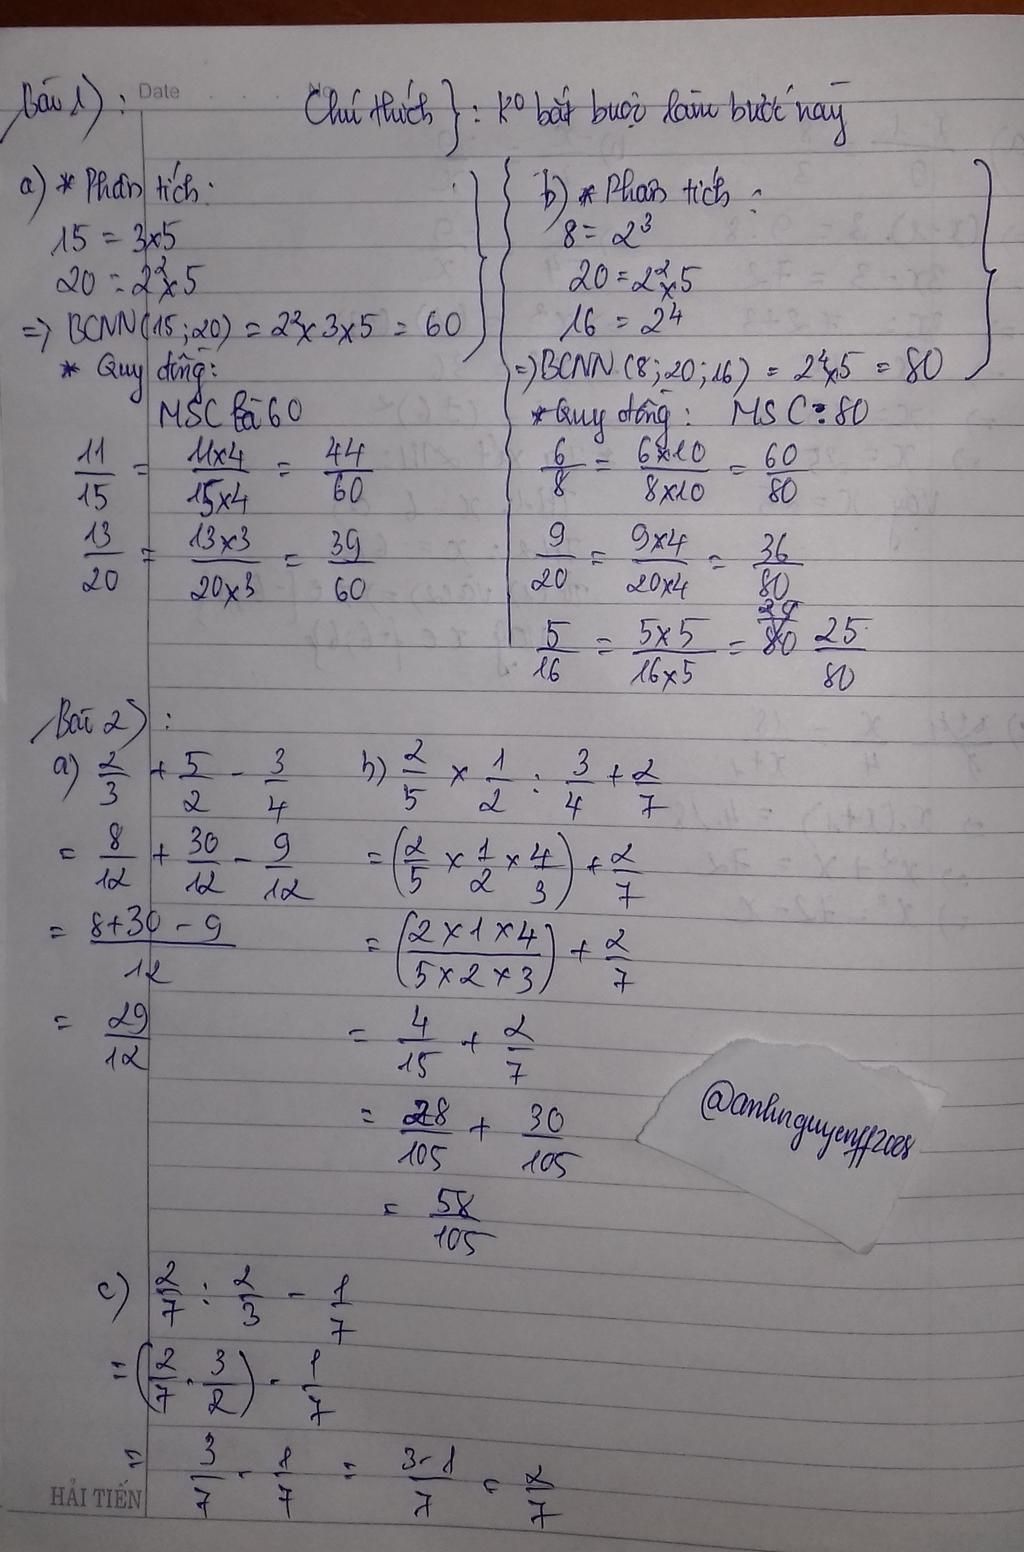 Date No
Bài 1) : Chú thích } : ko bắt buộc làm bước này
a) * Phân tích :
15 = 3x5
20 = 2²x5
=> BCNN(15;20) = 2²x3x5 = 60
* Quy đồng:
MSC là 60
11/15 = 11x4/15x4 = 44/60
13/20 = 13x3/20x3 = 39/60
b) * Phân tích :
8 = 2³
20 = 2²x5
16 = 2⁴
=> BCNN(8;20;16) = 2⁴x5 = 80
* Quy đồng : MSC : 80
6/8 = 6x10/8x10 = 60/80
9/20 = 9x4/20x4 = 36/80
5/16 = 5x5/16x5 = 25/80
Bài 2) :
a) 2/3 + 5/2 - 3/4
= 8/12 + 30/12 - 9/12
= 8+30-9/12
= 29/12
b) 2/5 x 1/2 : 3/4 + 2/7
= (2/5 x 1/2 x 4/3) + 2/7
= (2x1x4/5x2x3) + 2/7
= 4/15 + 2/7
= 28/105 + 30/105
= 58/105
@anhnguyenff2008
c) 2/7 : 2/3 - 1/7
= (2/7 . 3/2) - 1/7
= 3/7 - 1/7 = 3-1/7 = 2/7
HẢI TIẾN